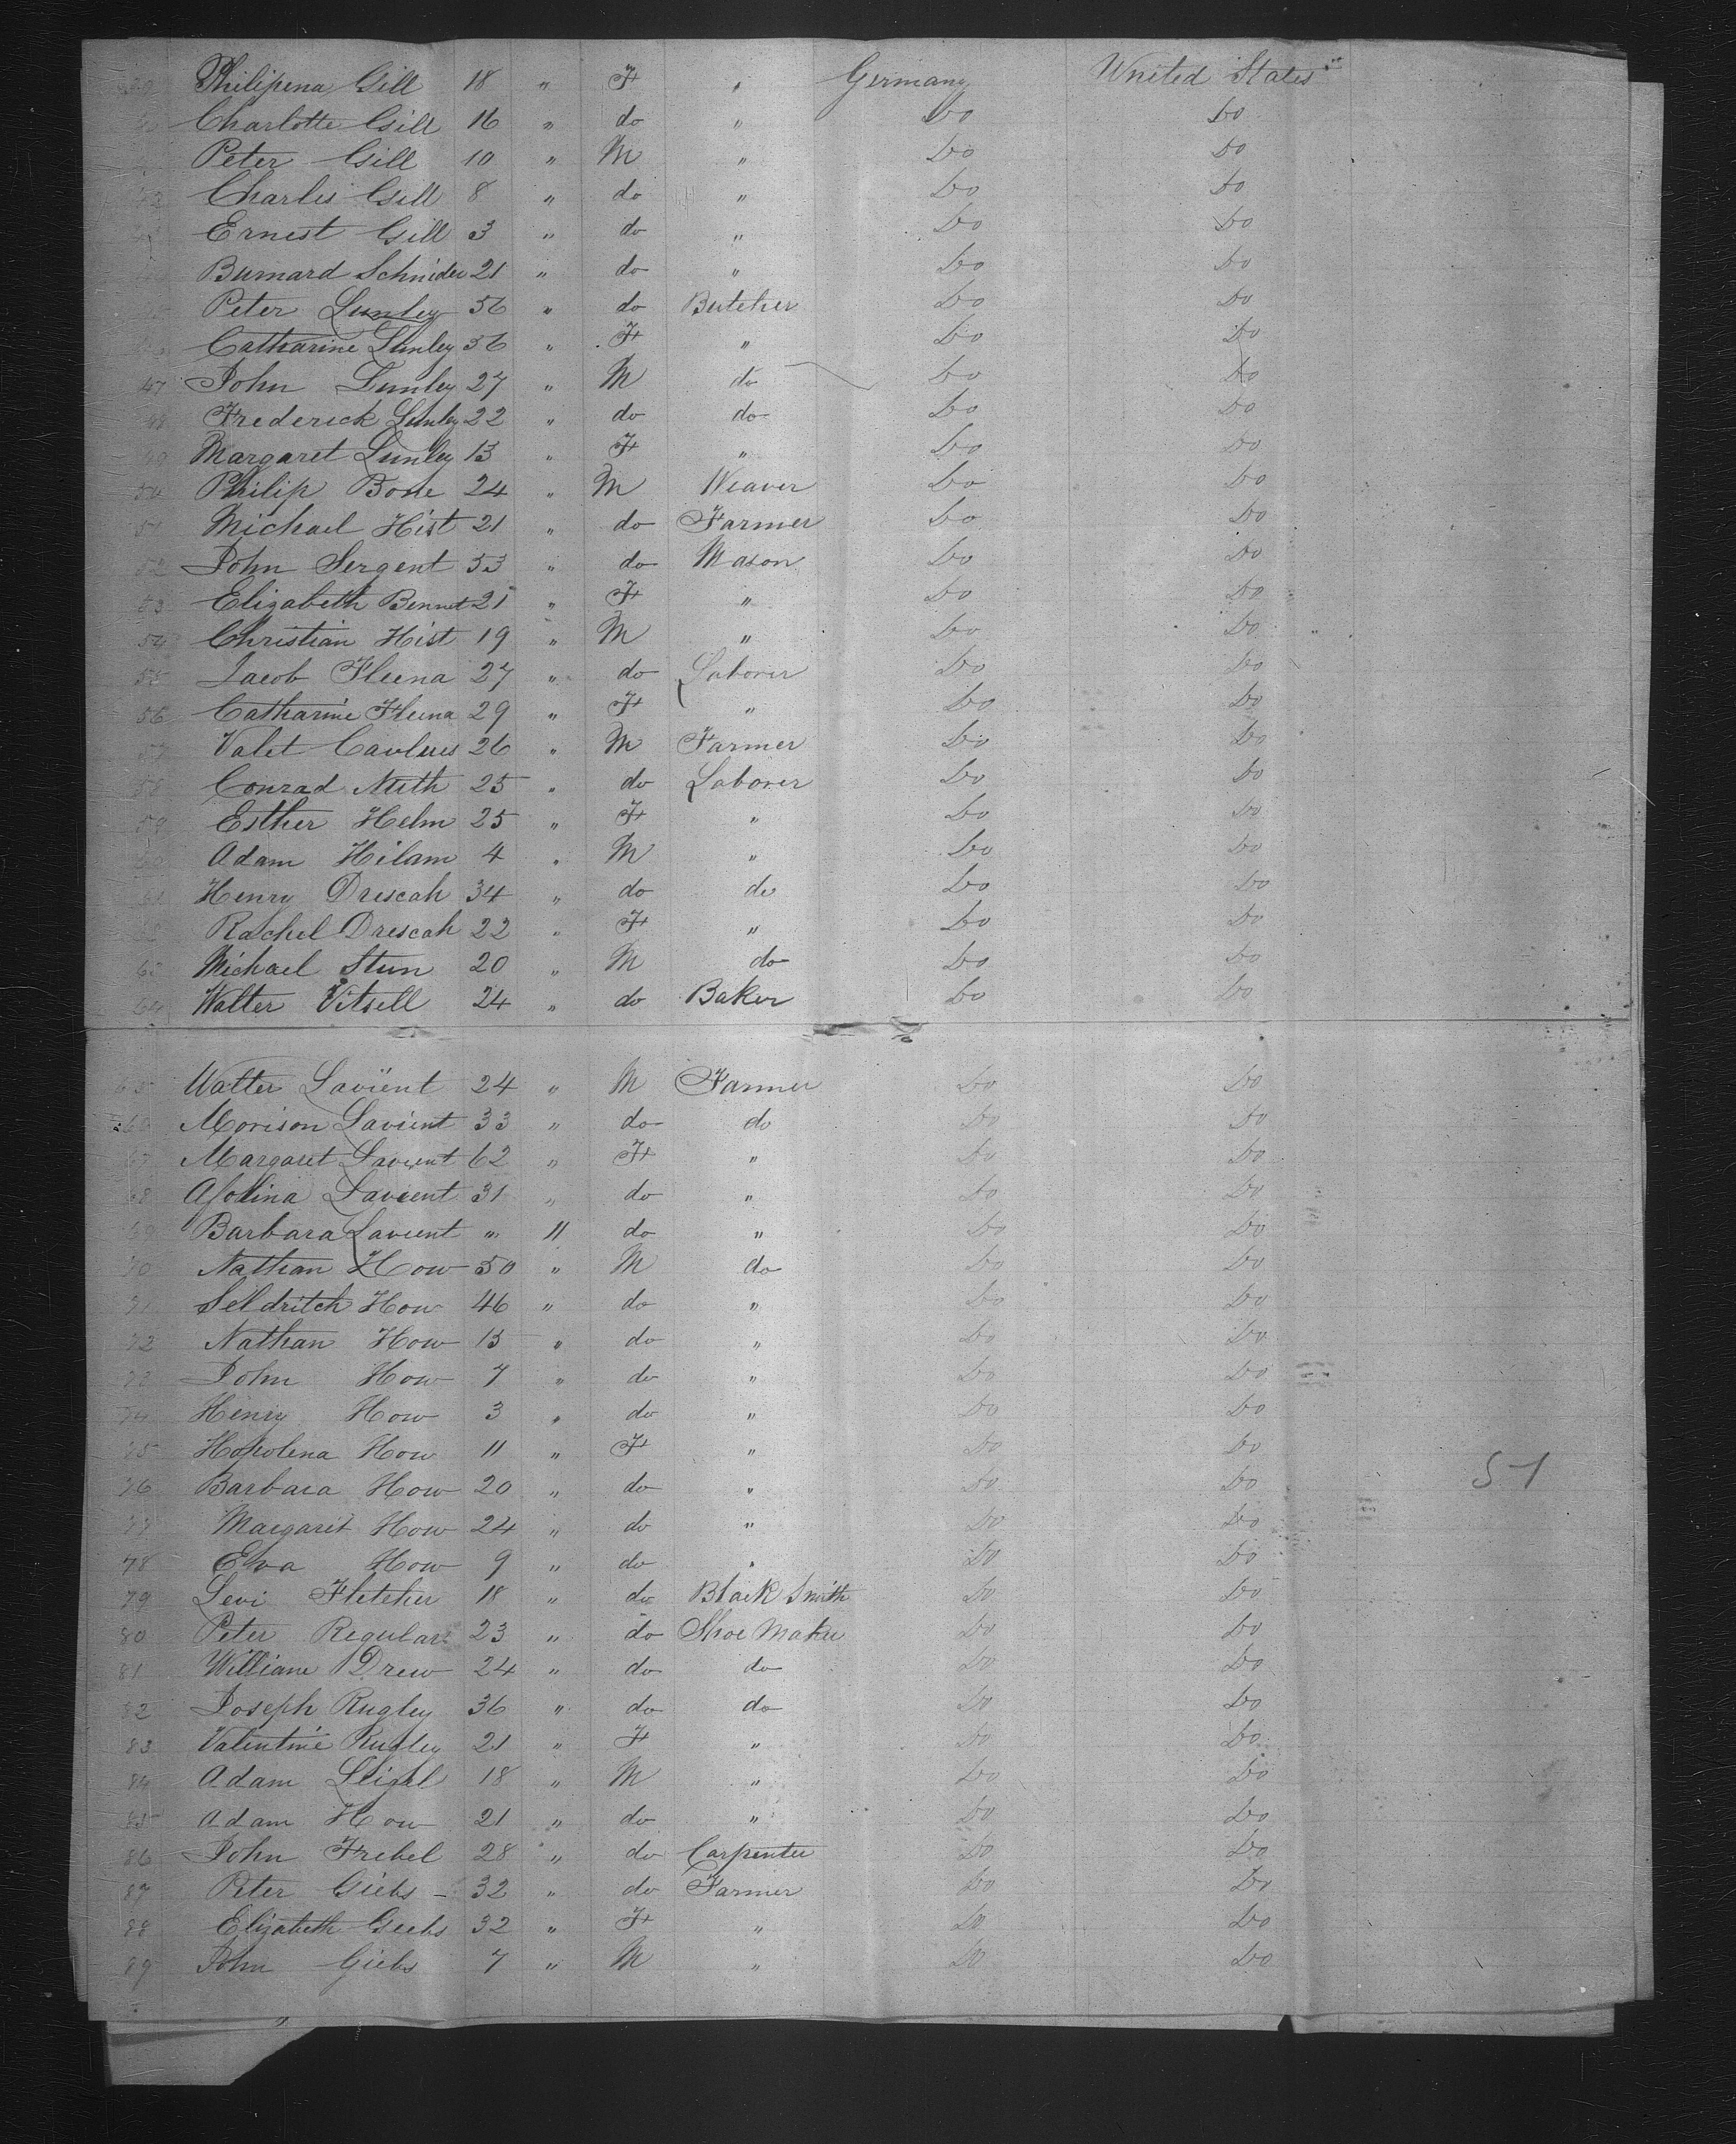 Philipena Gill 18 " F " Germany United States
Charlotte Gill 16 " do " Do Do
Peter Gill 10 " M " Do Do
42 Charles Gill 8 " do " Do Do
Ernest Gill 3 " do " Do Do
Burnard Schnider 21 " do " Do Do
Peter Lunley 56 " do Butcher Do Do
Catharine Lunley 56 " F " Do Do
47 John Lunley 27 " M do Do Do
48 Frederick Lunley 22 " do do Do Do
49 Margaret Lunley 13 " F " Do Do
50 Philip Bone 24 " M Weaver Do Do
51 Michael Hist 21 " do Farmer Do Do
52 John Sergent 53 " do Mason Do Do
53 Elizabeth Bennet 21 " F " Do Do
54 Christian Hist 19 " M " Do Do
55 Jacob Fleena 27 " do Laborer Do Do
56 Catharine Fleena 29 " F " Do Do
57 Valet 26 " M Farmer Do Do
58 Conrad Muth 25 " do Laborer Do Do
59 Esther Helm 25 " F " Do Do
60 Adam Hilam 4 " M " Do Do
61 Henry Drescah 34 " do do Do Do
62 Rachel Drescah 22 " F " Do Do
63 Michael Stun 20 " M do Do Do
64 Walter Vitsell 24 " do Baker Do Do
65 Walter Lavient 24 " M Farmer Do Do
66 Morison Lavient 33 " do do Do Do
67 Margaret Lavient 62 " F " Do Do
68 Lavient 31 " do " Do Do
69 Barbara Lavient " 11 do " Do Do
70 Nathan How 50 " M do Do Do
71 Seldritch How 46 " do " Do Do
72 Nathan How 15 " do " Do Do
73 John How 7 " do " Do Do
74 Henry How 3 " do " Do Do
75 Hopolena How 11 " F " Do Do
76 Barbara How 20 " do " Do Do
77 Margaret How 24 " do " Do Do
78 Eva How 9 " do " Do Do
79 Levi Fletcher 18 " do Black Smith Do Do
80 Peter Regular 23 " do Shoe Maker Do Do
81 William Drew 24 " do do Do Do
82 Joseph Rugley 36 " do do Do Do
83 Valentine Rugley 21 " F " Do Do
84 Adam Leigel 18 " M " Do Do
85 Adam How 21 " do " Do Do
86 John Frebel 28 " do Carpenter Do Do
87 Peter Giebs - 32 " do Farmer Do Do
88 Elizabeth Geebs 32 " F " Do Do
89 John Giebs 7 " M " Do Do
51